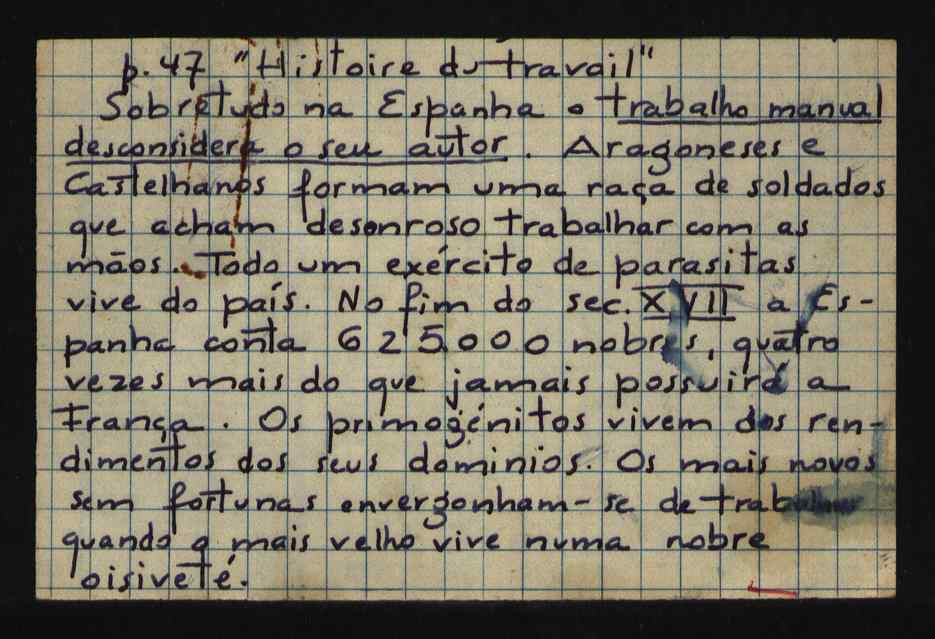 p. 47 "Histoire du travail"
Sobretudo na Espanha o trabalho manual
desconsidera o seu autor. Aragoneses e
Castelhanos formam uma raça de soldados
que acham desonroso trabalhar com as
mãos. Todo um exército de parasitas
vive do país. No fim do sec. XVII a Es-
panha conta 625.000 nobres, quatro
vezes mais do que jamais possuirá a
França. Os primogénitos vivem dos ren-
dimentos dos seus dominios. Os mais novos
sem fortunas envergonham-se de trabalhar
quando o mais velho vive numa nobre
oisiveté.